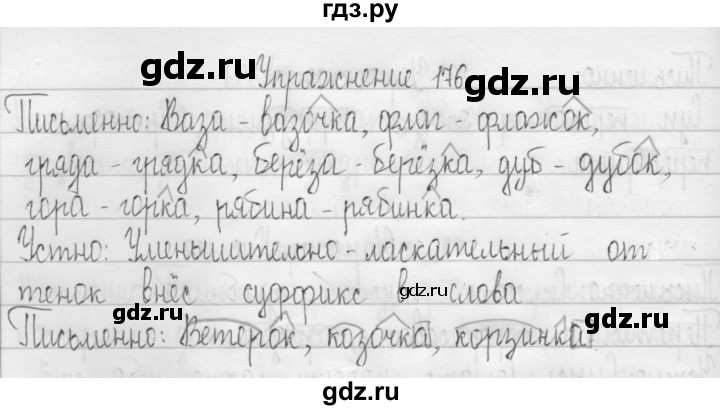 гдз.ру
gdz.ru gdz.ru
Упражнение 176
gdz.ru
Письменно: Ваза - вазочка, флаг - флажок,
гряда - грядка, берёза - берёзка, дуб - дубок,
гора - горка, рябина - рябинка.
Устно: Уменьшительно-ласкательный от
тенок внёс суффикс в слова
gdz.ru
gdz.ru gdz.ru
Письменно: Ветерок, козочка, корзинка.
gdz.ru